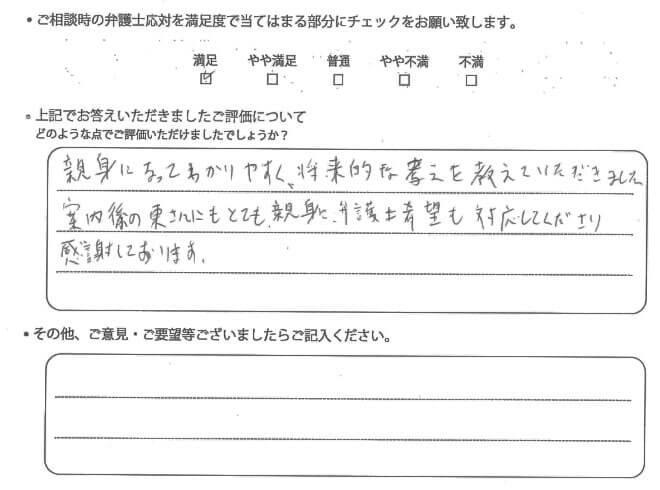 ・ご相談時の弁護士応対を満足度で当てはまる部分にチェックをお願い致します。
満足 やや満足 普通 やや不満 不満
☑ □ □ □ □
・上記でお答えいただきましたご評価について
どのような点でご評価いただけましたでしょうか？
親身になってわかりやすく、将来的な考えを教えていただきました
案内後の東さんにもとても、親身に、弁護士希望も対応してくださり
感謝しております。
・その他、ご意見・ご要望等ございましたらご記入ください。